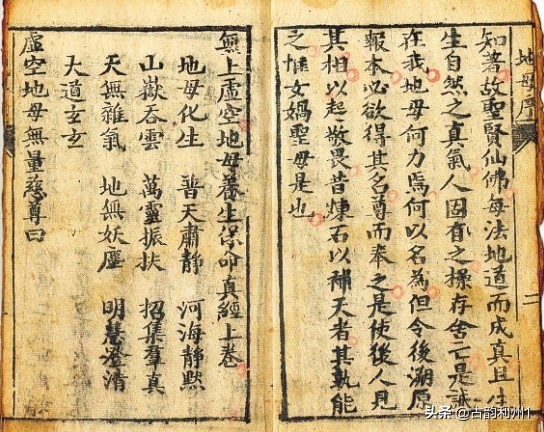 地母序 二
知著故聖賢仙佛每法地道而成真且生
生自然之真氣人固有之操存舍亡是誠
在我地母何力焉何以名為但令後溯原
報本必欲得其名尊而奉之是使後人見
其相以起敬畏昔煉石以補天者其孰能
之惟女媧聖母是也
無上虛空地母養生保命真經上卷
地母化生 普天肅靜 河海靜默
山嶽吞雲 萬靈振扶 招集羣真
天無雜氣 地無妖塵 明慧澄清
大道玄玄
虛空地母無量慈尊曰
头条 @古韵利州1